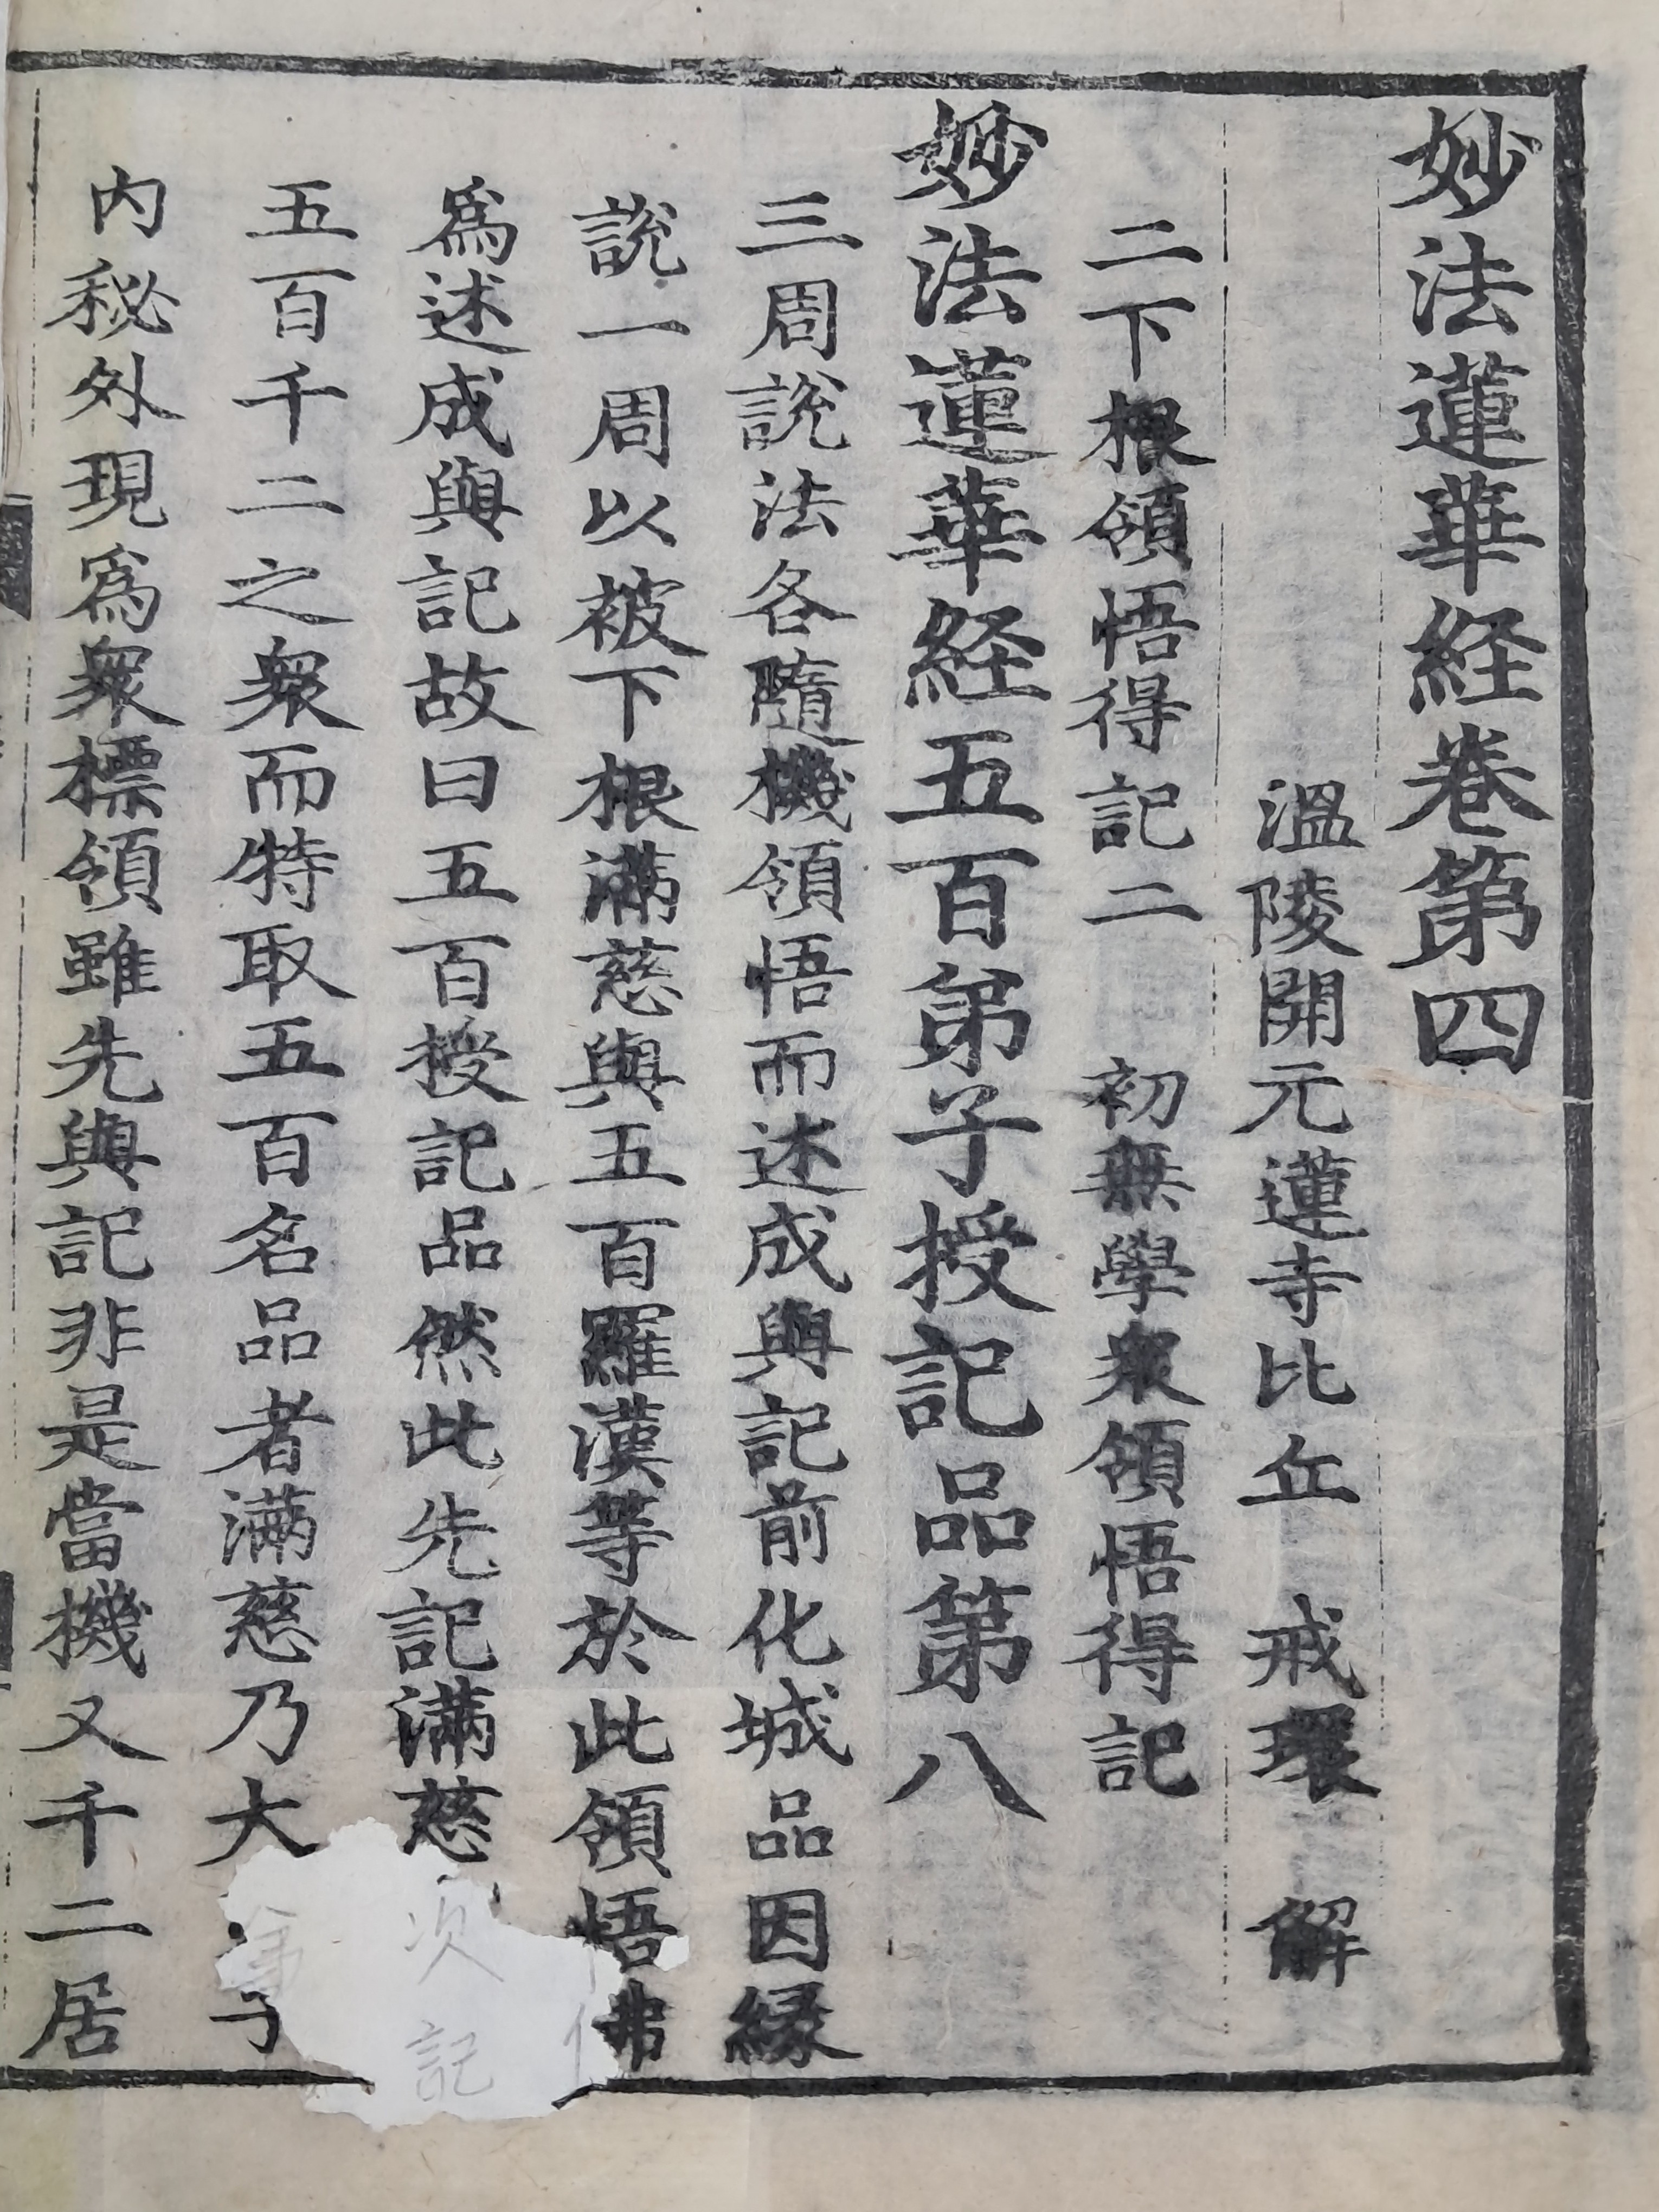 妙法蓮華経卷第四
溫陵開元蓮寺比丘 戒環 解
二下根領悟得記二 初無學衆領悟得記
妙法蓮華経五百弟子授記品第八
三周說法各隨機領悟而述成與記前化城品因緣
說一周以被下根滿慈與五百羅漢等於此領悟佛
爲述成與記故曰五百授記品然此先記滿慈次記
五百千二之衆而特取五百名品者滿慈乃大弟子
內秘外現爲衆標領雖先與記非是當機又千二居